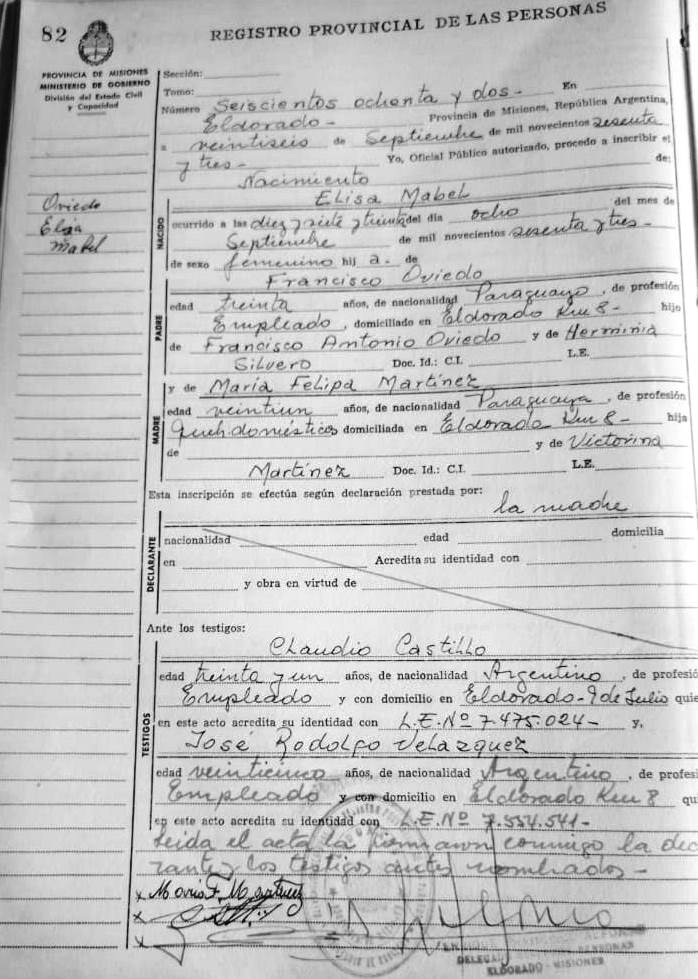 82
REGISTRO PROVINCIAL DE LAS PERSONAS
PROVINCIA DE MISIONES
MINISTERIO DE GOBIERNO
División del Estado Civil
y Capacidad
Oviedo
Elisa
Mabel
Sección:
Tomo:
Número Seiscientos ochenta y dos - En
Eldorado - Provincia de Misiones, República Argentina,
a veintiseis de Septiembre de mil novecientos sesenta
y tres - Yo, Oficial Público autorizado, procedo a inscribir el
Nacimiento de:
NACIDO
Elisa Mabel
ocurrido a las diez y siete y treinta del día ocho del mes de
Septiembre de mil novecientos sesenta y tres -
de sexo femenino hij a. de
PADRE
Francisco Oviedo
edad treinta años, de nacionalidad Paraguayo, de profesión
Empleado, domiciliado en Eldorado Km 8 - hijo
de Francisco Antonio Oviedo y de Herminia
Silvero Doc. Id.: C.I. L.E.
MADRE
y de María Felipa Martínez
edad veintiun años, de nacionalidad Paraguaya, de profesión
Queh. domésticos domiciliada en Eldorado Km 8 - hija
de y de Victorina
Martínez Doc. Id.: C.I. L.E.
Esta inscripción se efectúa según declaración prestada por:
la madre
DECLARANTE
nacionalidad edad domicilia
en Acredita su identidad con
y obra en virtud de
Ante los testigos:
TESTIGOS
Claudio Castillo
edad treinta y un años, de nacionalidad Argentino, de profesió
Empleado y con domicilio en Eldorado - 9 de Julio quie
en este acto acredita su identidad con L.E. Nº 7.475.024 - y,
José Rodolfo Velazquez
edad veinticinco años, de nacionalidad Argentino, de profesi
Empleado y con domicilio en Eldorado Km 8 qui
en este acto acredita su identidad con L.E. Nº 7.554.541 -
Leida el acta la firmaron conmigo la dec
rante y los testigos antes nombrados -
x Maria F. Martinez
x
x
ALFONSO
PERSONAS
DELEGA
ELDORADO - MISIONES